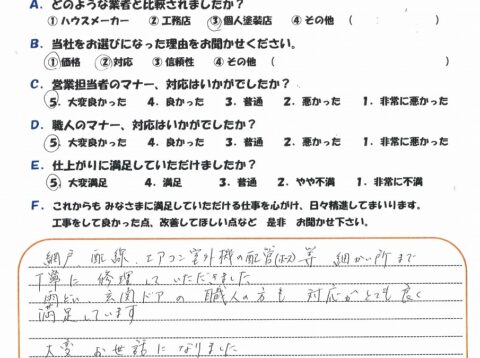 A. どのような業者と比較されましたか？
① ハウスメーカー ② 工務店 ③ 個人塗装店 ④ その他 ( )
B. 当社をお選びになった理由をお聞かせください。
① 価格 ② 対応 ③ 信頼性 ④ その他 ( )
C. 営業担当者のマナー、対応はいかがでしたか？
5. 大変良かった 4. 良かった 3. 普通 2. 悪かった 1. 非常に悪かった
D. 職人のマナー、対応はいかがでしたか？
5. 大変良かった 4. 良かった 3. 普通 2. 悪かった 1. 非常に悪かった
E. 仕上がりに満足していただけましたか？
5. 大変満足 4. 満足 3. 普通 2. やや不満 1. 非常に不満
F. これからも みなさまに満足していただける仕事を心がけ、日々精進してまいります。
工事をして良かった点、改善してほしい点など 是非 お聞かせ下さい。
網戸 配線、エアコン室外機の配管(ホース)等 細かい所まで
丁寧に 修理していただきました
雨どい、玄関ドアの 職人の方も 対応がとても良く
満足しています
大変 お世話になりました